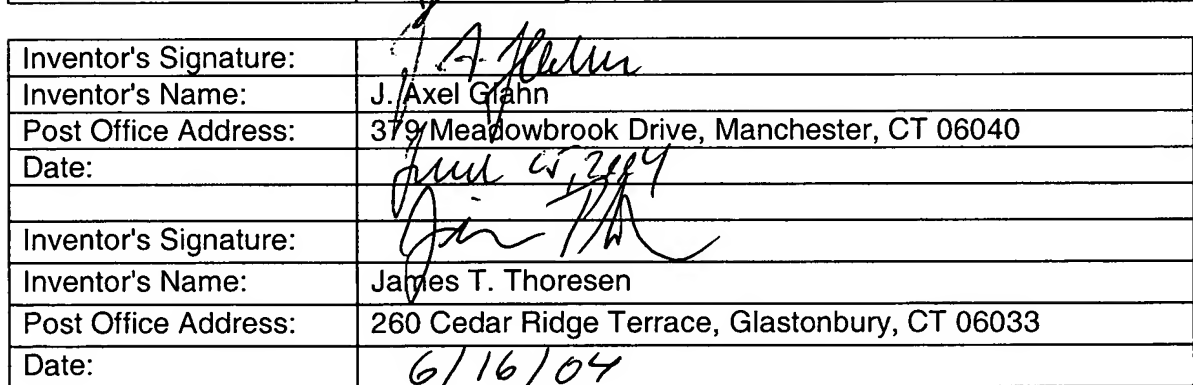 Inventor's Signature:
Inventor's Name: J. Axel Glahn
Post Office Address: 379 Meadowbrook Drive, Manchester, CT 06040
Date: June 15, 2004
Inventor's Signature: Jim
Inventor's Name: James T. Thoresen
Post Office Address: 260 Cedar Ridge Terrace, Glastonbury, CT 06033
Date: 6/16/04